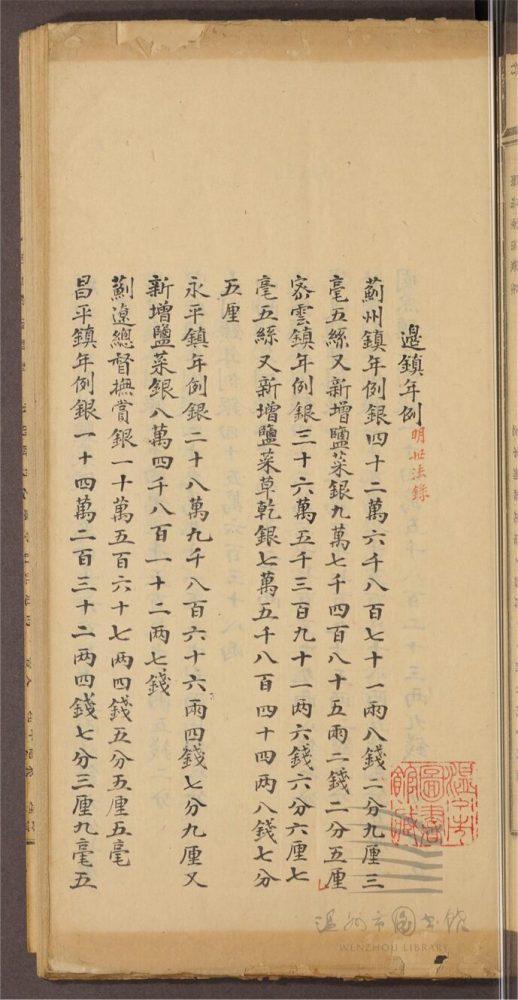 邊鎮年例 明世法錄
薊州鎮年例銀四十二萬六千八百七十一兩八錢二分九厘三
毫五絲又新增鹽菜銀九萬七千四百八十五兩二錢二分五厘
密雲鎮年例銀三十六萬五千三百九十一两六錢六分六厘七
毫五絲又新增鹽菜草乾銀七萬五千八百四十四两八錢七分
五厘
永平鎮年例銀二十八萬九千八百六十六兩四錢七分九厘又
新增鹽菜銀八萬四千八百一十二两七錢
薊遼總督撫賞銀一十萬五百六十七两四錢五分五厘五毫
昌平鎮年例銀一十四萬二百三十二两四錢七分三厘九毫五
溫州市圖書館藏
温州市图书馆
WENZHOU LIBRARY